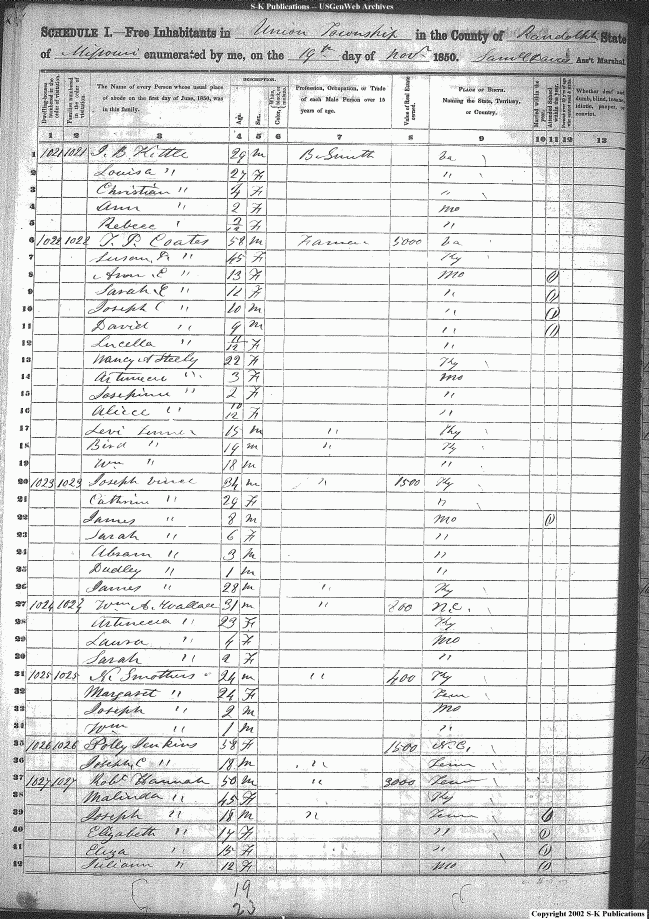 S-K Publications -- USGenWeb Archives
SCHEDULE I.—Free Inhabitants in Union Township in the County of Randolph State
of Missouri enumerated by me, on the 19th day of Novr 1850. Ass't Marshal
DESCRIPTION.
Dwelling-houses numbered in the order of visitation. Families numbered in the order of visitation. The Name of every Person whose usual place of abode on the first day of June, 1850, was in this family. Age. Sex. Color, White, black, or mulatto. Profession, Occupation, or Trade of each Male Person over 15 years of age. Value of Real Estate owned. PLACE OF BIRTH. Naming the State, Territory, or Country. Married within the year. Attended School within the year. Whether deaf and dumb, blind, insane, idiotic, pauper, or convict.
1 2 3 4 5 6 7 8 9 10 11 12 13
1 1021 1021 J. B. Kittle 29 M B. Smith Va
2 Louisa " 27 F "
3 Christian " 4 F "
4 Ann " 2 F Mo
5 Rebecc " 2/12 F "
6 1022 1022 T. P. Coates 52 M Farmer 5000 Va
7 Susan " 45 F Ky
8 E " 13 F Mo (1)
9 Sarah E " 11 F " (1)
10 Joseph C " 10 M " (1)
11 David " 9 M " (1)
12 Lucella " 11/12 F "
13 Nancy A Steely 22 F Ky
14 " 3 F Mo
15 Josephine " 2 F "
16 Alice " 10/12 F "
17 Levi 15 M " Ky
18 Bird " 19 M Ky
19 Wm " 18 M "
20 1023 1023 Joseph 34 M " 1500 Ky
21 Cathrine " 29 F "
22 James " 8 M Mo (1)
23 Sarah " 6 F "
24 Absam " 3 M "
25 Dudley " 1 M "
26 James " 28 M " Ky
27 1024 1024 Wm A. Wallace 31 M " 200 N.C.
28 " 23 F Ky
29 Laura " 4 F Mo
30 Sarah " 2 F "
31 1025 1025 N. Smothers 24 M " 400 Ky
32 Margaret " 24 F Tenn
33 Joseph " 2 M Mo
34 Wm " 1 M "
35 1026 1026 Polly Jenkins 58 F 1500 N.C.
36 Joseph C " 18 M " Tenn
37 1027 1027 Robt Hannah 50 M " 3000 Tenn
38 Malinda " 45 F Ky
39 Joseph " 18 M " Tenn (1)
40 Elizabeth " 17 F " (1)
41 Eliza " 15 F " (1)
42 Juliann " 12 F Mo (1)
19
23
Copyright 2002 S-K Publications